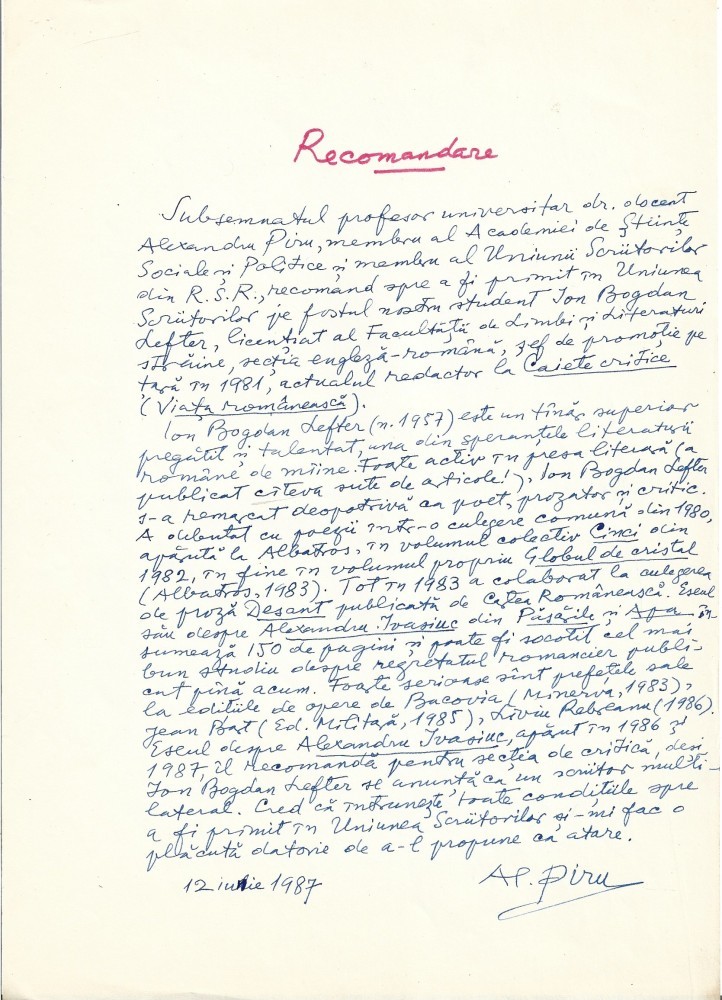 Recomandare
Subsemnatul profesor universitar dr. docent
Alexandru Piru, membru al Academiei de Științe
Sociale și Politice și membru al Uniunii Scriitorilor
din R.S.R., recomand spre a fi primit în Uniunea
Scriitorilor pe fostul nostru student Ion Bogdan
Lefter, licențiat al Facultății de Limbi și Literaturi
străine, secția engleză-română, șef de promoție pe
țară în 1981, actualul redactor la Caiete critice
(Viața românească).
Ion Bogdan Lefter (n. 1957) este un tînăr superior
pregătit și talentat, una din speranțele literaturii
române de mîine. Foate activ în presa literară (a
publicat cîteva sute de articole!), Ion Bogdan Lefter
s-a remarcat deopotrivă ca poet, prozator și critic.
A debutat cu poezii într-o culegere comună din 1980,
apărută la Albatros, în volumul colectiv Cinci din
1982, în fine în volumul propriu Globul de cristal
(Albatros, 1983). Tot în 1983 a colaborat la culegerea
de proză Desant publicată de Cartea Românească. Eseul
său despre Alexandru Ivasiuc din Păsările și Apa în-
sumează 150 de pagini și poate fi socotit cel mai
bun studiu despre regretatul romancier publi-
cat pînă acum. Foarte serioase sînt prefețele sale
la edițiile de opere de Bacovia (Minerva, 1983),
Jean Bart (Ed. Militară, 1985), Liviu Rebreanu (1986).
Eseul despre Alexandru Ivasiuc, apărut în 1986 și
1987, îl recomandă pentru secția de critică, deși
Ion Bogdan Lefter se anunță ca un scriitor multi-
lateral. Cred că întrunește toate condițiile spre
a fi primit în Uniunea Scriitorilor și-mi fac o
plăcută datorie de a-l propune ca atare.
12 1987 Al. Piru